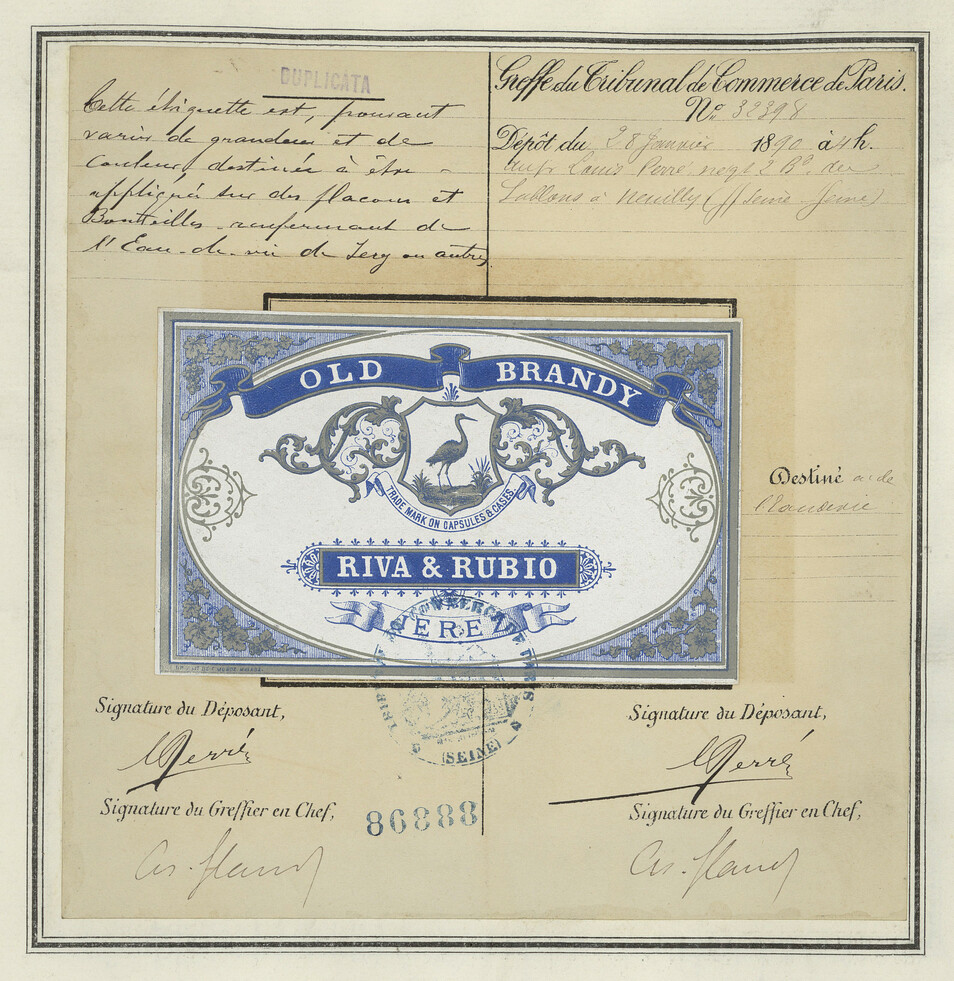 DUPLICATA
Cette étiquette est, pouvant
varier de grandeur et de
couleur, destinée à être
appliquée sur des flacons et
Bouteilles renfermant de
l'Eau-de-vie de Jerez ou autres
Greffe du Tribunal de Commerce de Paris.
No. 32398
Dépôt du 28 Janvier 1890 à 4 h.
Louis Perré negt 2 Bd. des
Sablons à Neuilly s/ Seine (Seine)
OLD BRANDY
TRADE MARK ON CAPSULES & CASES
RIVA & RUBIO
JEREZ
Destiné à de
l'Eau de vie
TRIBUNAL DE COMMERCE PARIS
(SEINE)
Signature du Déposant,
L Perré
Signature du Greffier en Chef,
86888
Signature du Déposant,
L Perré
Signature du Greffier en Chef,